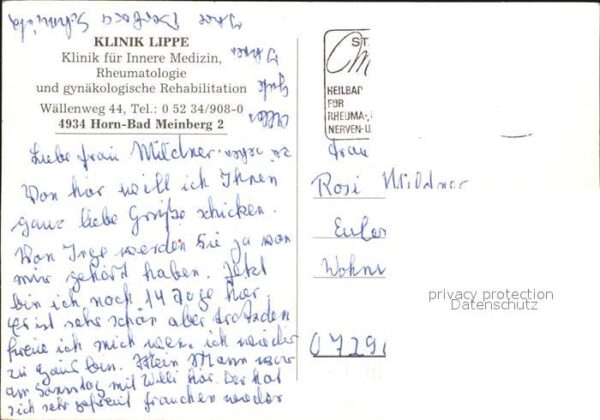 Ihre Barbara Schmidt
Ihnen
Gute
Alles
KLINIK LIPPE
Klinik für Innere Medizin,
Rheumatologie
und gynäkologische Rehabilitation
Wällenweg 44, Tel.: 0 52 34/908-0
4934 Horn-Bad Meinberg 2
Liebe Frau Mildner
Von hier will ich Ihnen
ganz liebe Grüße schicken.
Von Inge werden Sie ja von
mir gehört haben. Jetzt
bin ich noch 14 Tage hier
Es ist sehr schön aber trotzdem
freue ich mich wenn ich wieder
zu Haus bin. Mein Mann war
am Sonntag mit Willi hier. Der hat
sich sehr gefreut Frauchen wieder
ST
HEILBAD
FÜR
RHEUMA-,
NERVEN-U.
Frau
Rosi Mildner
Euler
Wohn
privacy protection
Datenschutz
0729